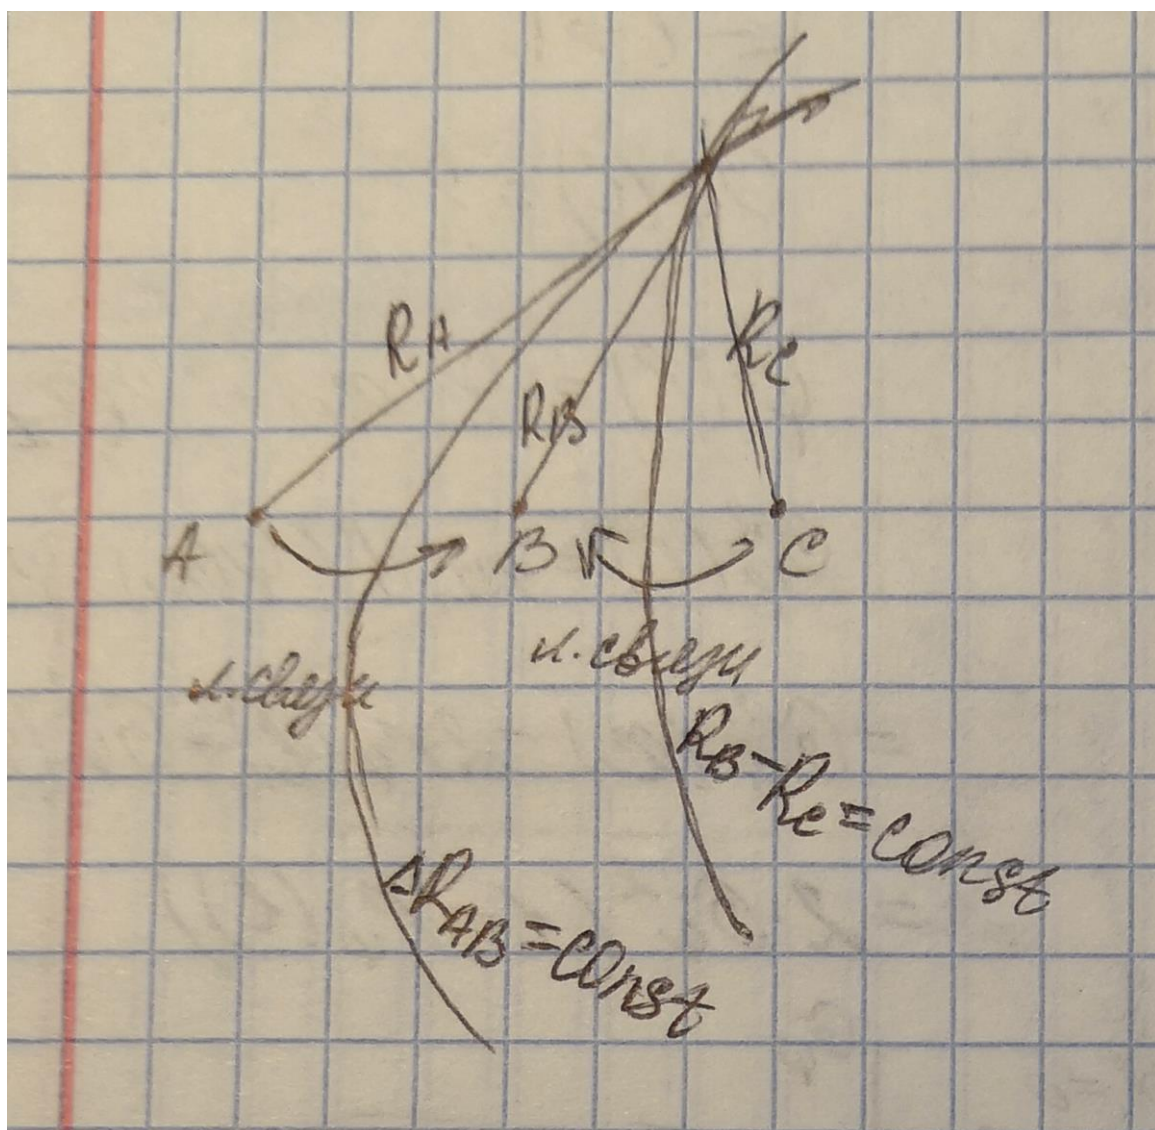 RA
RB
Rc
A
B
C
л. связи
л. связи
RB-Rc=const
ΔRAB=const